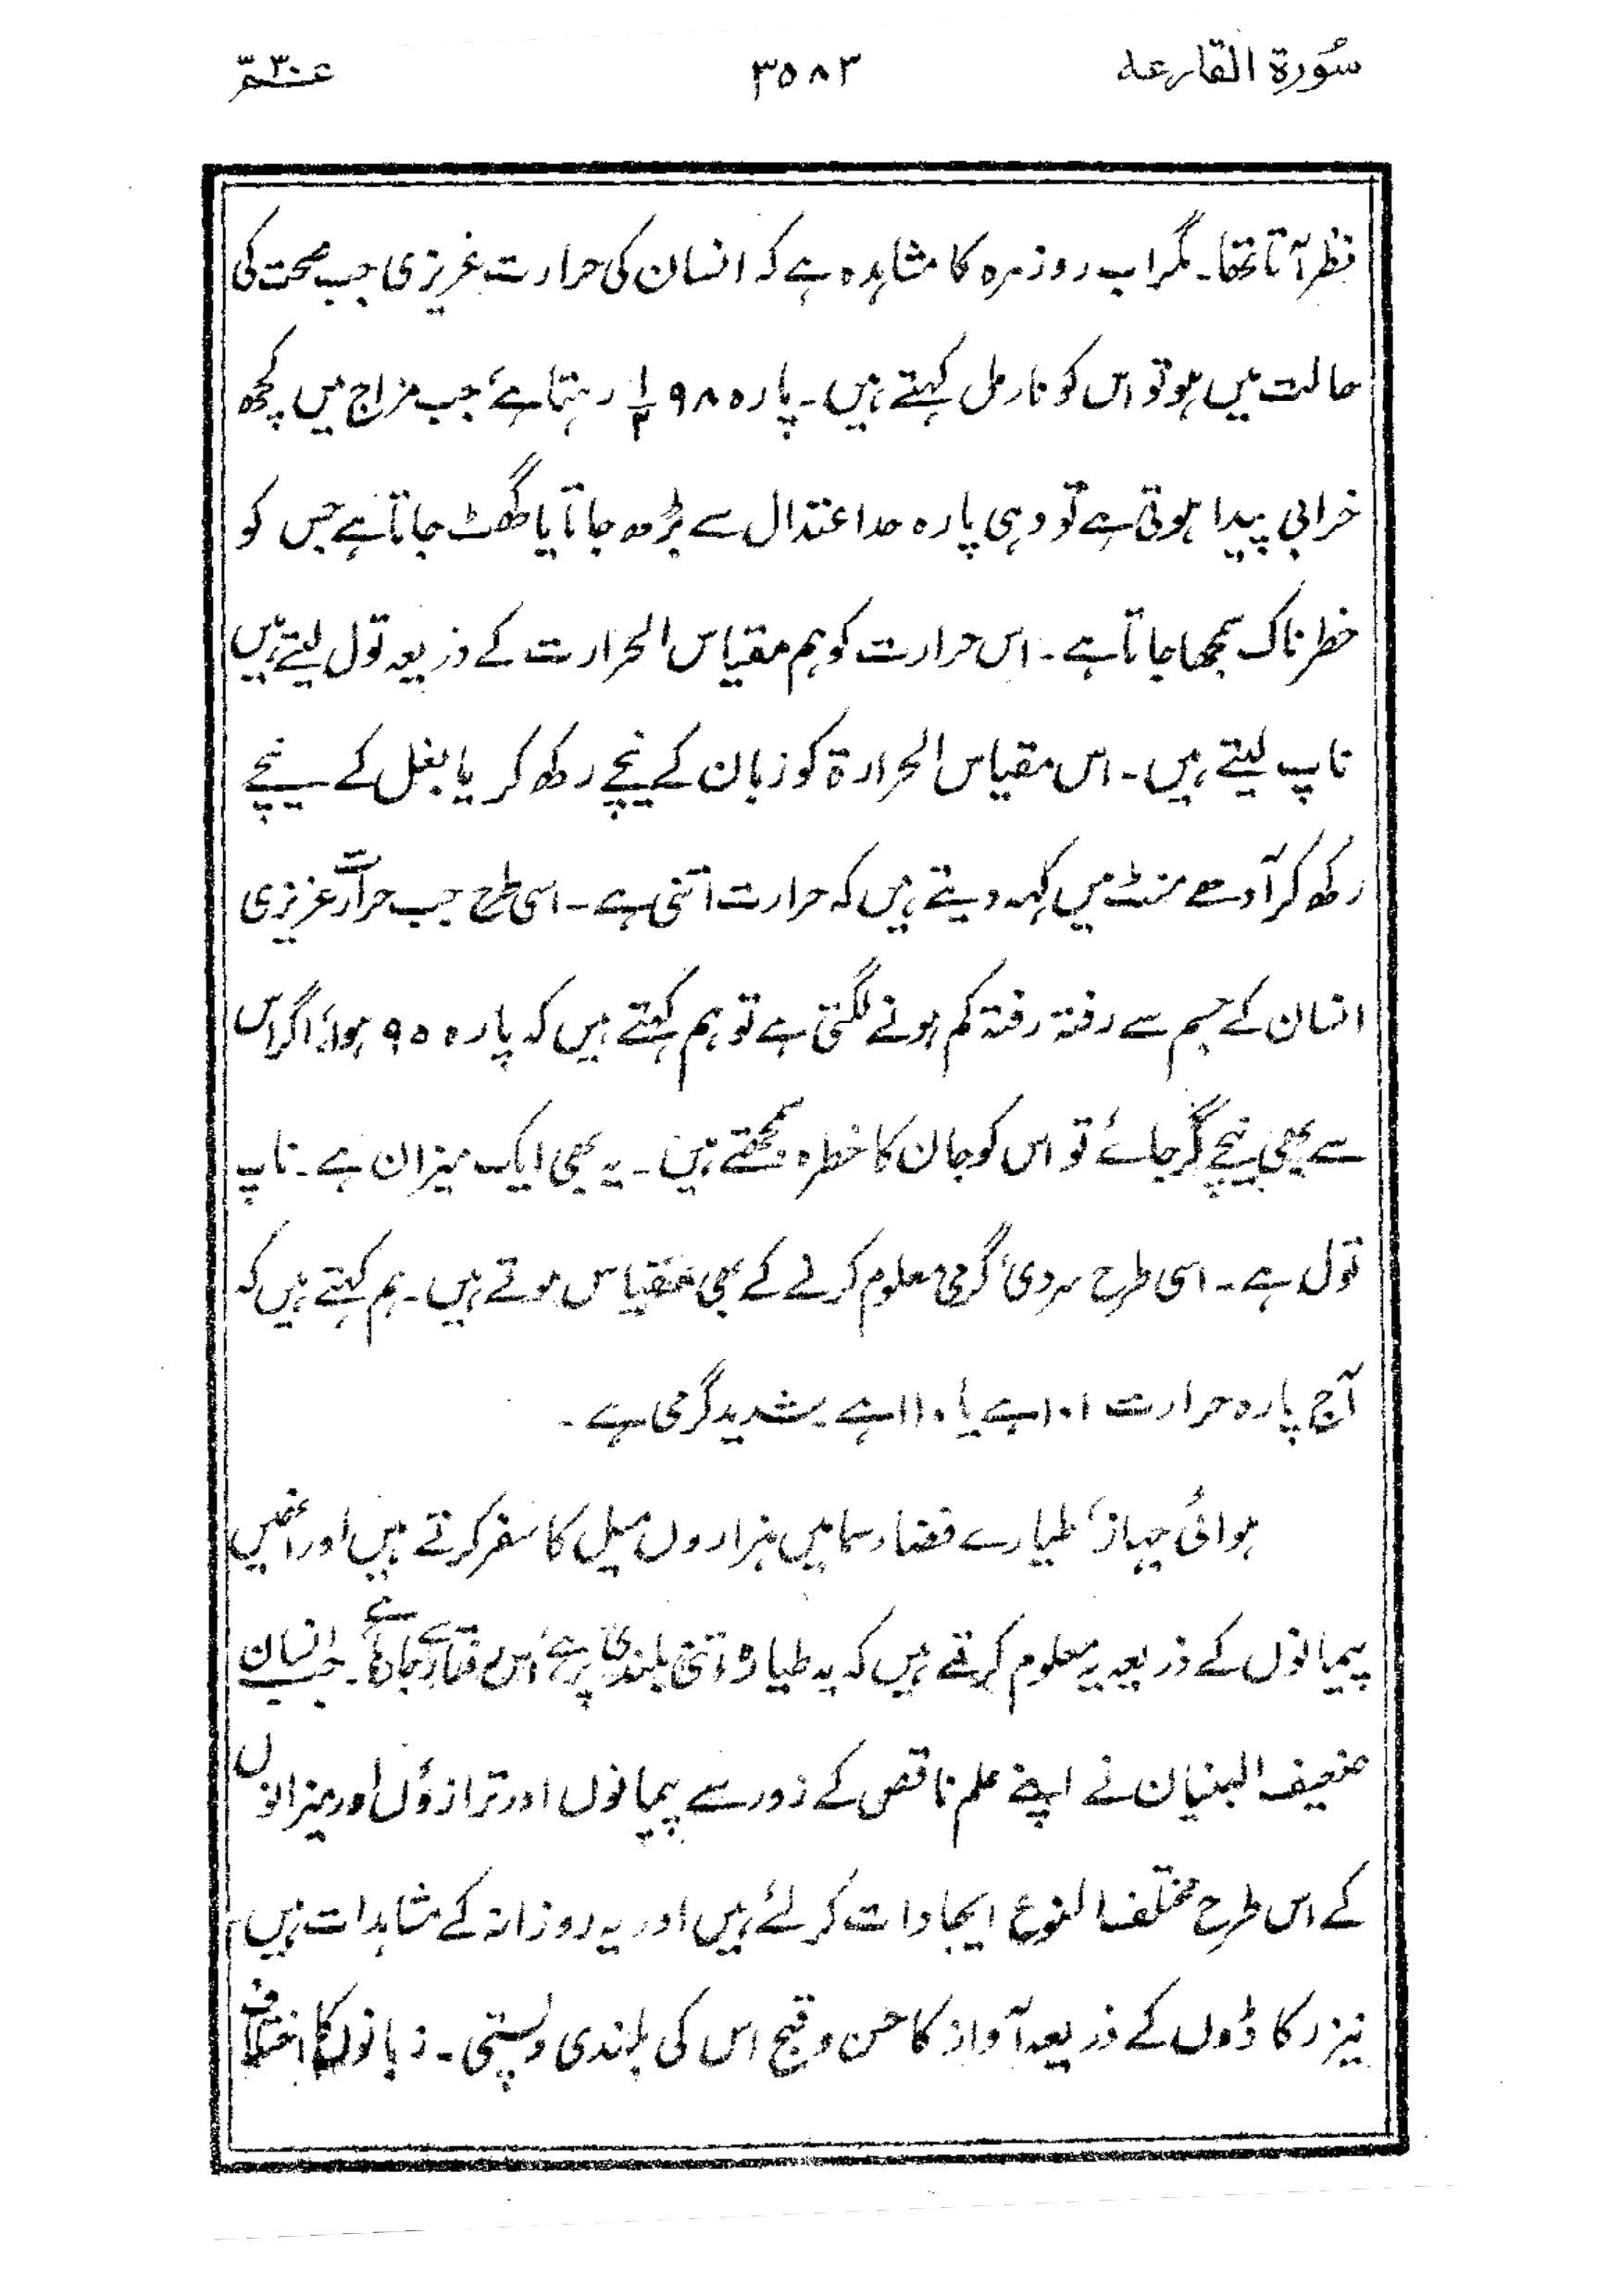 سُورة القارعه ۳۵۸۳ عـــم ۳۰
نظر آتا تھا۔ مگر اب روزمرہ کا مشاہدہ ہے کہ انسان کی حرارت غریزی جب صحت کی
حالت میں ہو تو اس کو نارمل کہتے ہیں۔ پارہ ۹۸ ۱/۲ رہتا ہے، جب مزاج میں کچھ
خرابی پیدا ہوتی ہے تو وہی پارہ حد اعتدال سے بڑھ جاتا یا گھٹ جاتا ہے جس کو
خطرناک سمجھا جاتا ہے۔ اس حرارت کو ہم مقیاس الحرارت کے ذریعہ تول لیتے ہیں
ناپ لیتے ہیں۔ اس مقیاس الحرارۃ کو زبان کے نیچے رکھ کر یا بغل کے نیچے
رکھ کر آدھے منٹ میں کہہ دیتے ہیں کہ حرارت اتنی ہے۔ اسی طرح جب حرارت غریزی
انسان کے جسم سے رفتہ رفتہ کم ہونے لگتی ہے تو ہم کہتے ہیں کہ پارہ ۹۵ ہوا، اگر اس
سے بھی نیچے گر جائے تو اس کو جان کا خطرہ سمجھتے ہیں۔ یہ بھی ایک میزان ہے۔ ناپ
تول ہے۔ اسی طرح سردی، گرمی معلوم کرنے کے بھی مقیاس ہوتے ہیں۔ ہم کہتے ہیں کہ
آج پارہ حرارت ۱۰۱ ہے یا ۱۱۰ ہے۔ شدید گرمی ہے۔
ہوائی جہاز، طیارے فضاء سما میں ہزاروں میل کا سفر کرتے ہیں اور انھیں
پیمانوں کے ذریعہ یہ معلوم کرتے ہیں کہ یہ طیارہ اتنی بلندی پر ہے، اس رفتار سے جا رہا ہے۔ جب انسان
ضعیف البنیان نے اپنے علم ناقص کے زور سے پیمانوں اور ترازوؤں اور میزانوں
کے اس طرح مختلف النوع ایجادات کر لئے ہیں اور یہ روزانہ کے مشاہدات ہیں۔
نیز رکاڈوں کے ذریعہ آواز کا حسن و قبح اس کی بلندی و پستی۔ زبانوں کا اختلاف